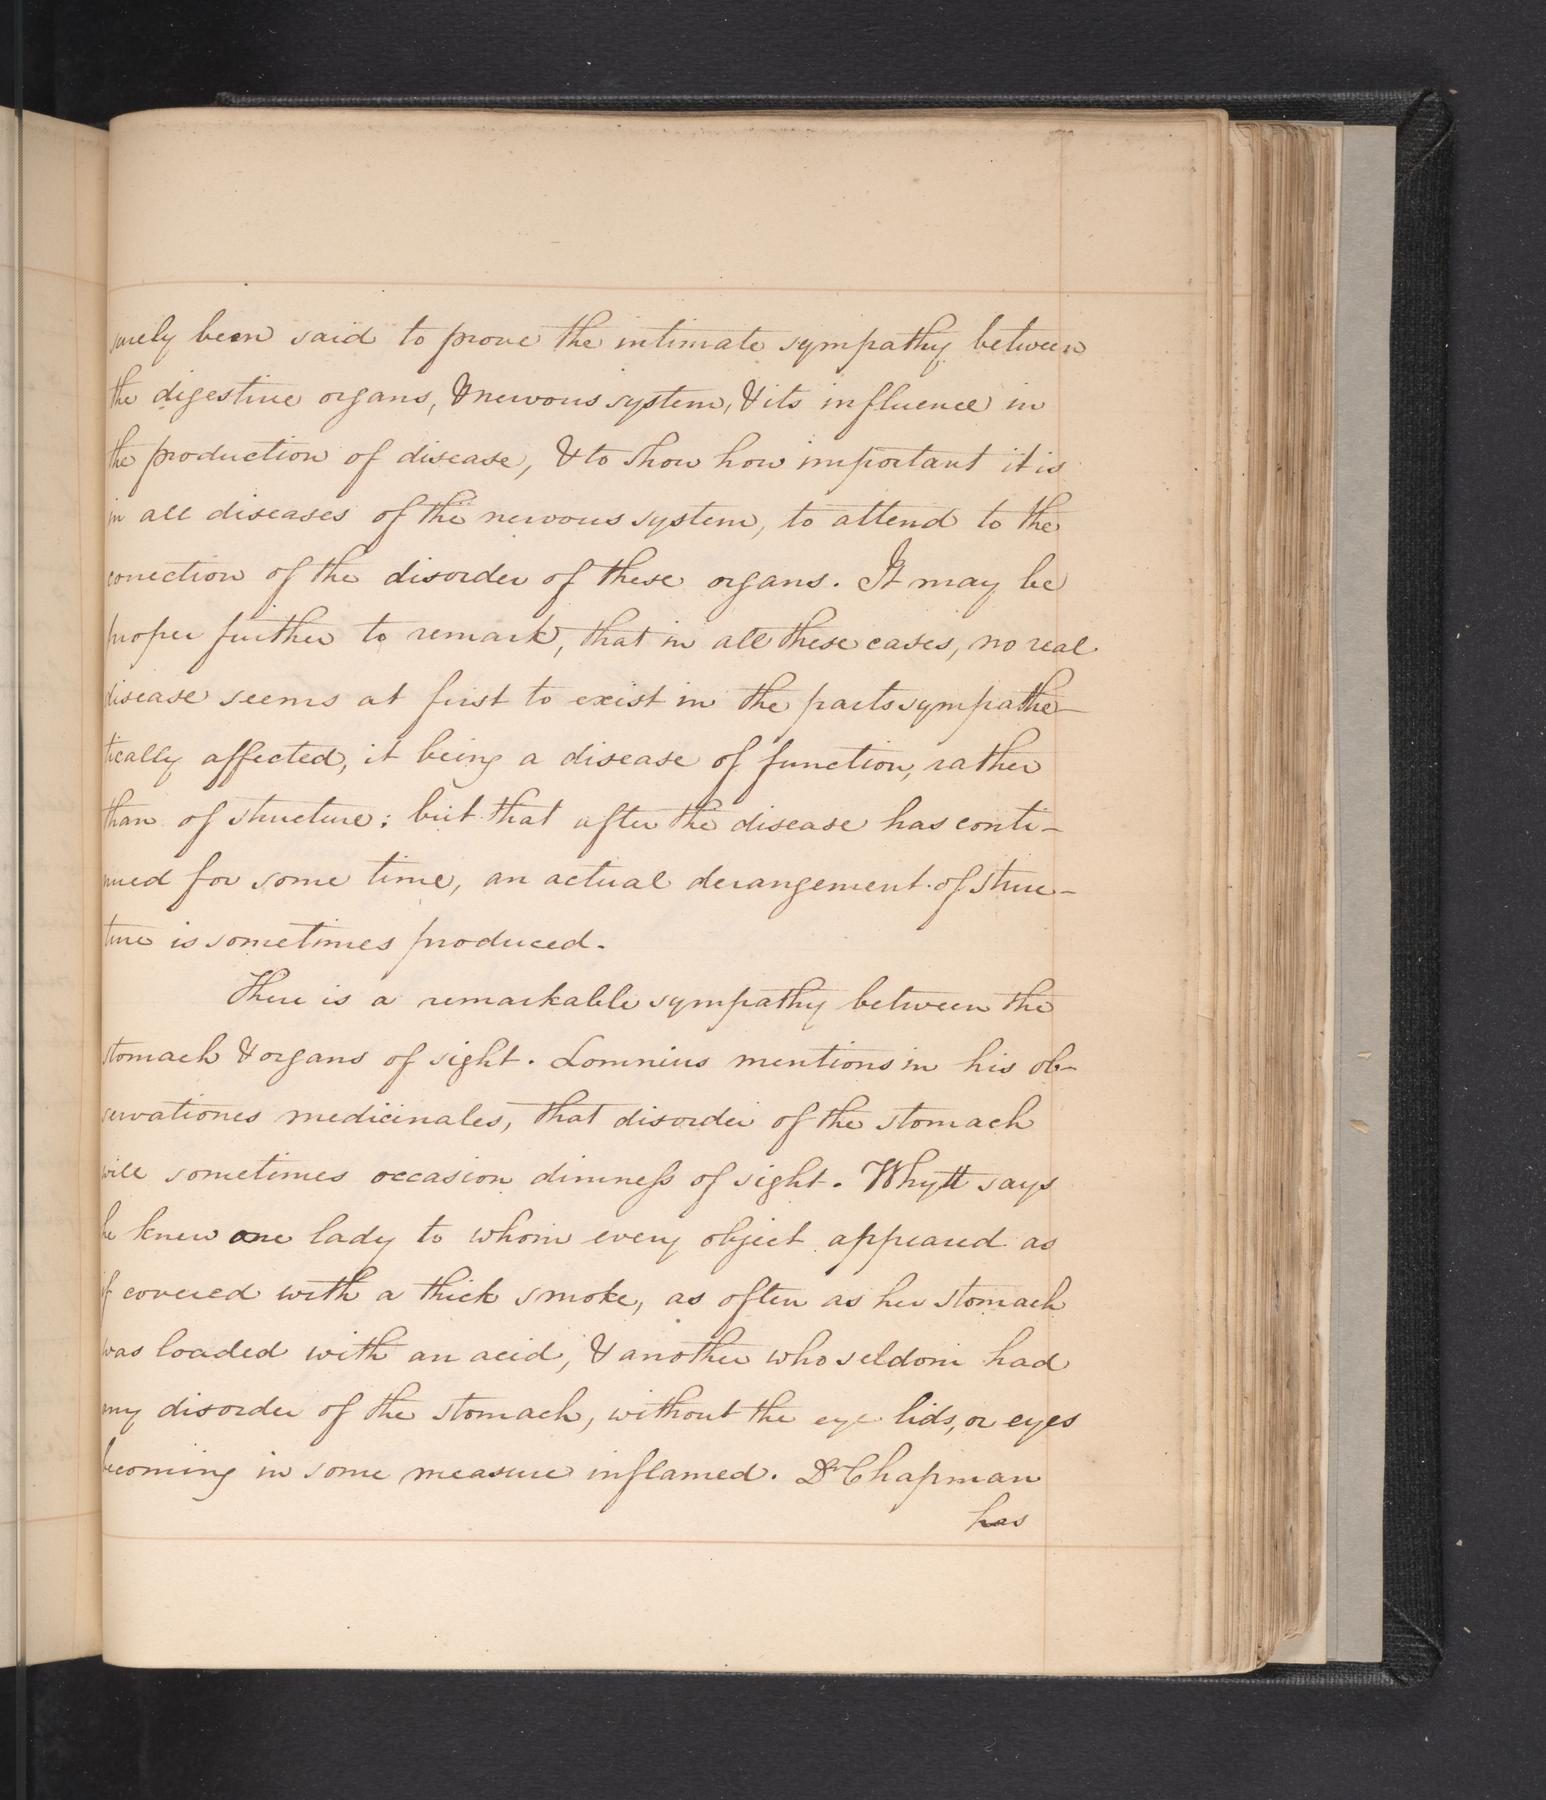 surely been said to prove the intimate sympathy between
the digestive organs, & nervous system, & its influence in
the production of disease, & to show how important it is
in all diseases of the nervous system, to attend to the
correction of the disorder of these organs. It may be
proper further to remark, that in all these cases, no real
disease seems at first to exist in the parts sympathe-
tically affected, it being a disease of function, rather
than of structure: but that after the disease has conti-
nued for some time, an actual derangement of struc-
ture is sometimes produced.
There is a remarkable sympathy between the
stomach & organs of sight. Lomnius mentions in his ob-
servationes medicinales, that disorder of the stomach
will sometimes occasion dimness of sight. Whytt says
he knew one lady to whom every object appeared as
if covered with a thick smoke, as often as her stomach
was loaded with an acid, & another who seldom had
any disorder of the stomach, without the eye lids, or eyes
becoming in some measure inflamed. Dr Chapman
has